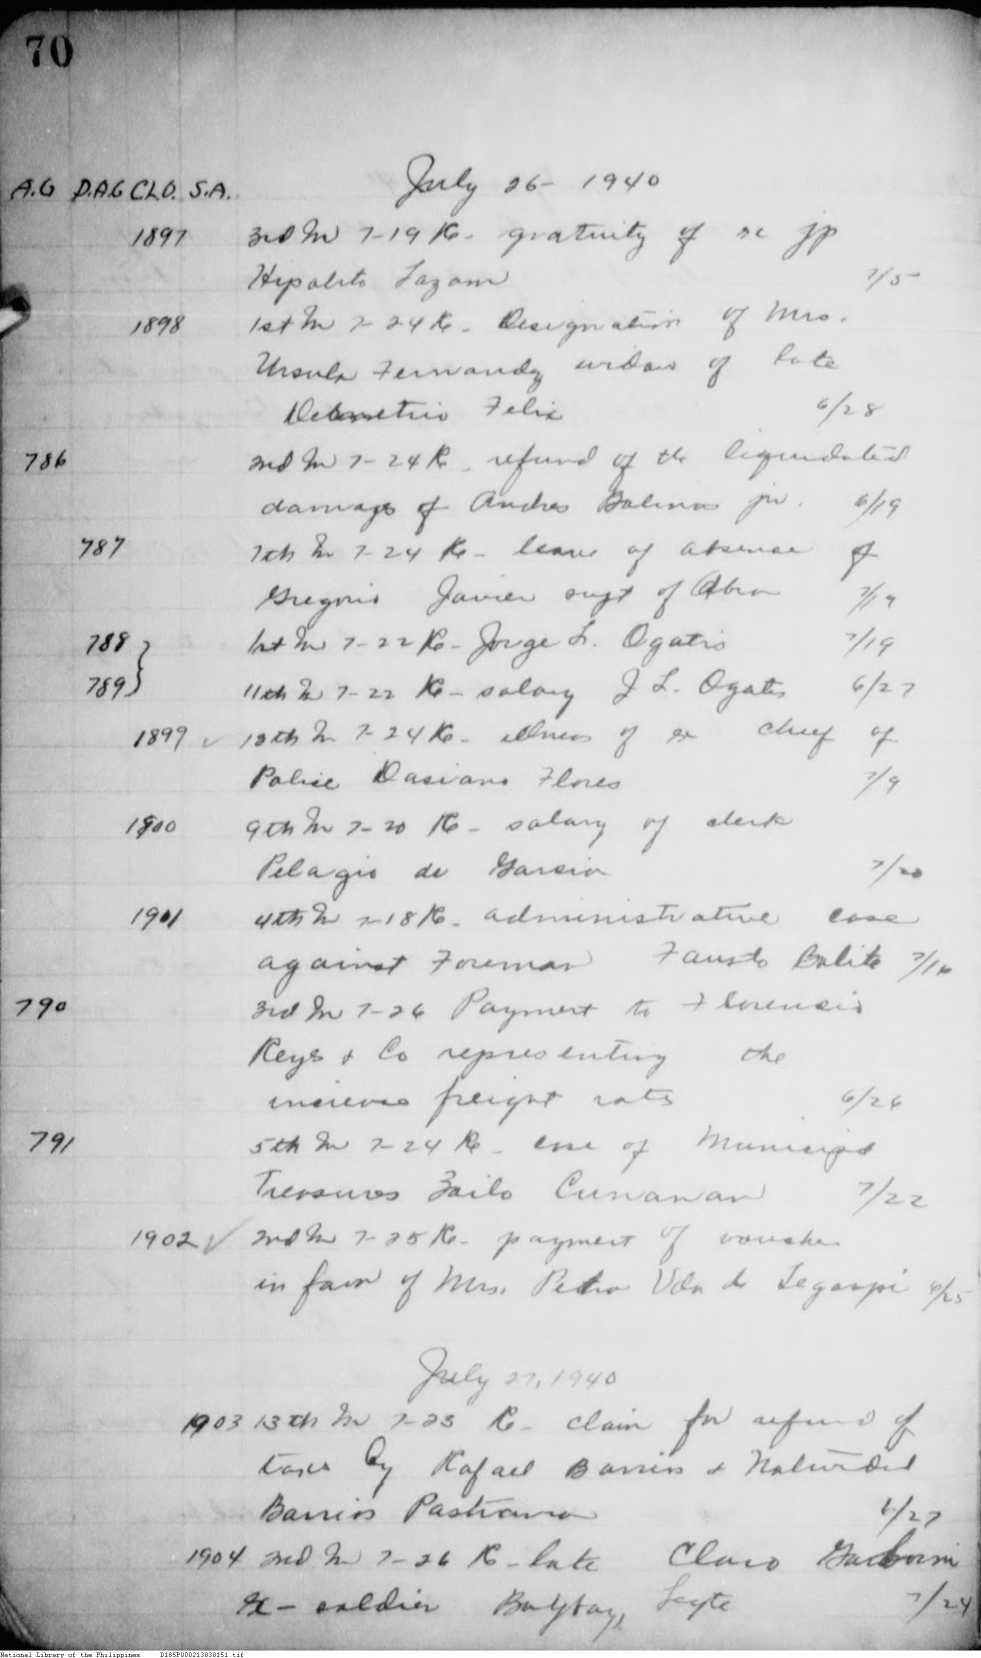 70
July 26- 1940
A.G D.A.G CLD. S.A.
1897 3rd In 7-19 R- gratuity of re jp
Hipolito Lazam 7/5
1898 1st In 7-24 R- Designation of Mrs.
Ursula Fernandez widow of late
Demetrio Felix 6/28
786 2nd In 7-24 R- refund of the liquidated
damage of Andres Galinas jr. 6/19
787 7th In 7-24 R- leave of absence of
Gregorio Javier supt of Abra 7/19
788 1st In 7-22 R- Jorge L. Ogatis 7/19
789 11th In 7-22 R- salary J L. Ogatis 6/27
1899 ✓ 13th In 7-24 R- illness of ex chief of
Police Dasiano Flores 7/9
1900 9th In 7-20 R- salary of clerk
Pelagio de Garcia 7/20
1901 4th In 7-18 R- administrative case
against Foreman Fausto Balite 7/16
790 3rd In 7-26 Payment to Florencio
Reyes & Co representing the
increase freight rates 6/26
791 5th In 7-24 R- case of Municipal
Treasurer Zoilo Cunanan 7/22
1902 ✓ 2nd In 7-25 R- payment of voucher
in favor of Mrs. Pedro Vda de Legaspi 6/25
July 27, 1940
1903 13th In 7-23 R- claim for refund of
taxes by Rafael Barrios & Natividad
Barrios Pastrana 6/27
1904 2nd In 7-26 R- late Claro
Ex- soldier Baybay, Leyte 7/24
National Library of the Philippines D185P000213030151.tif